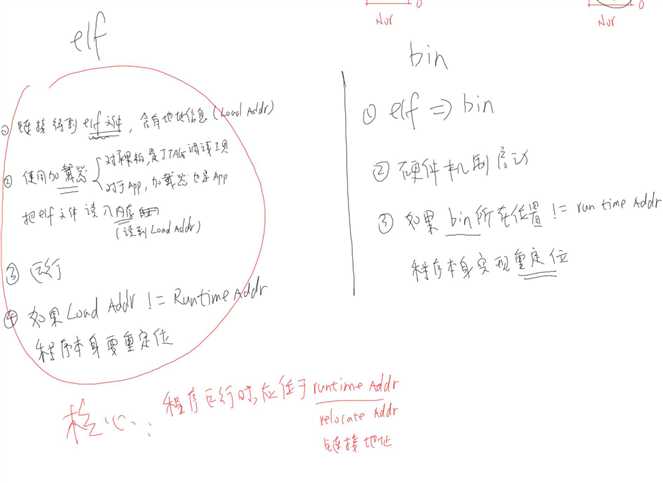 0
Nor
0
Nor
elf
① 链接得到elf文件，含有地址信息(Load Addr)
② 使用加载器 { 对于裸板,是JTAG调试工具
对于App, 加载器也是App
把elf文件读入内存
(读到Load Addr)
③ 运行
④ 如果Load Addr != Runtime Addr
程序本身要重定位
bin
① elf => bin
② 硬件机制启动
③ 如果bin所在位置 != runtime Addr
程序本身实现重定位
核心: 程序运行时,应位于 runtime Addr
relocate Addr
链接地址